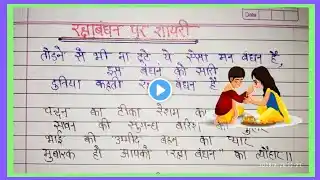 रक्षाबंधन पर शायरी
तोड़ने से भी ना टूटे ये ऐसा मन बंधन है,
इस बंधन को सारी
दुनिया कहती रक्षा बंधन है
चन्दन का टीका रेशम का
सावन की सुगन्ध बारिश की फुहार
भाई की उम्मीद बहन का प्यार
मुबारक हो आपको "रक्षा बंधन" का त्यौहार॥